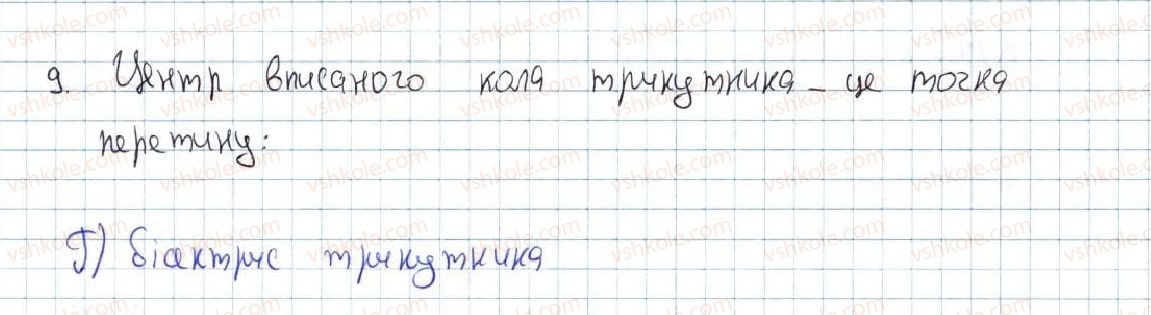 9. Центр вписаного кола трикутника – це точка
перетину:
Г) бісектрис трикутника